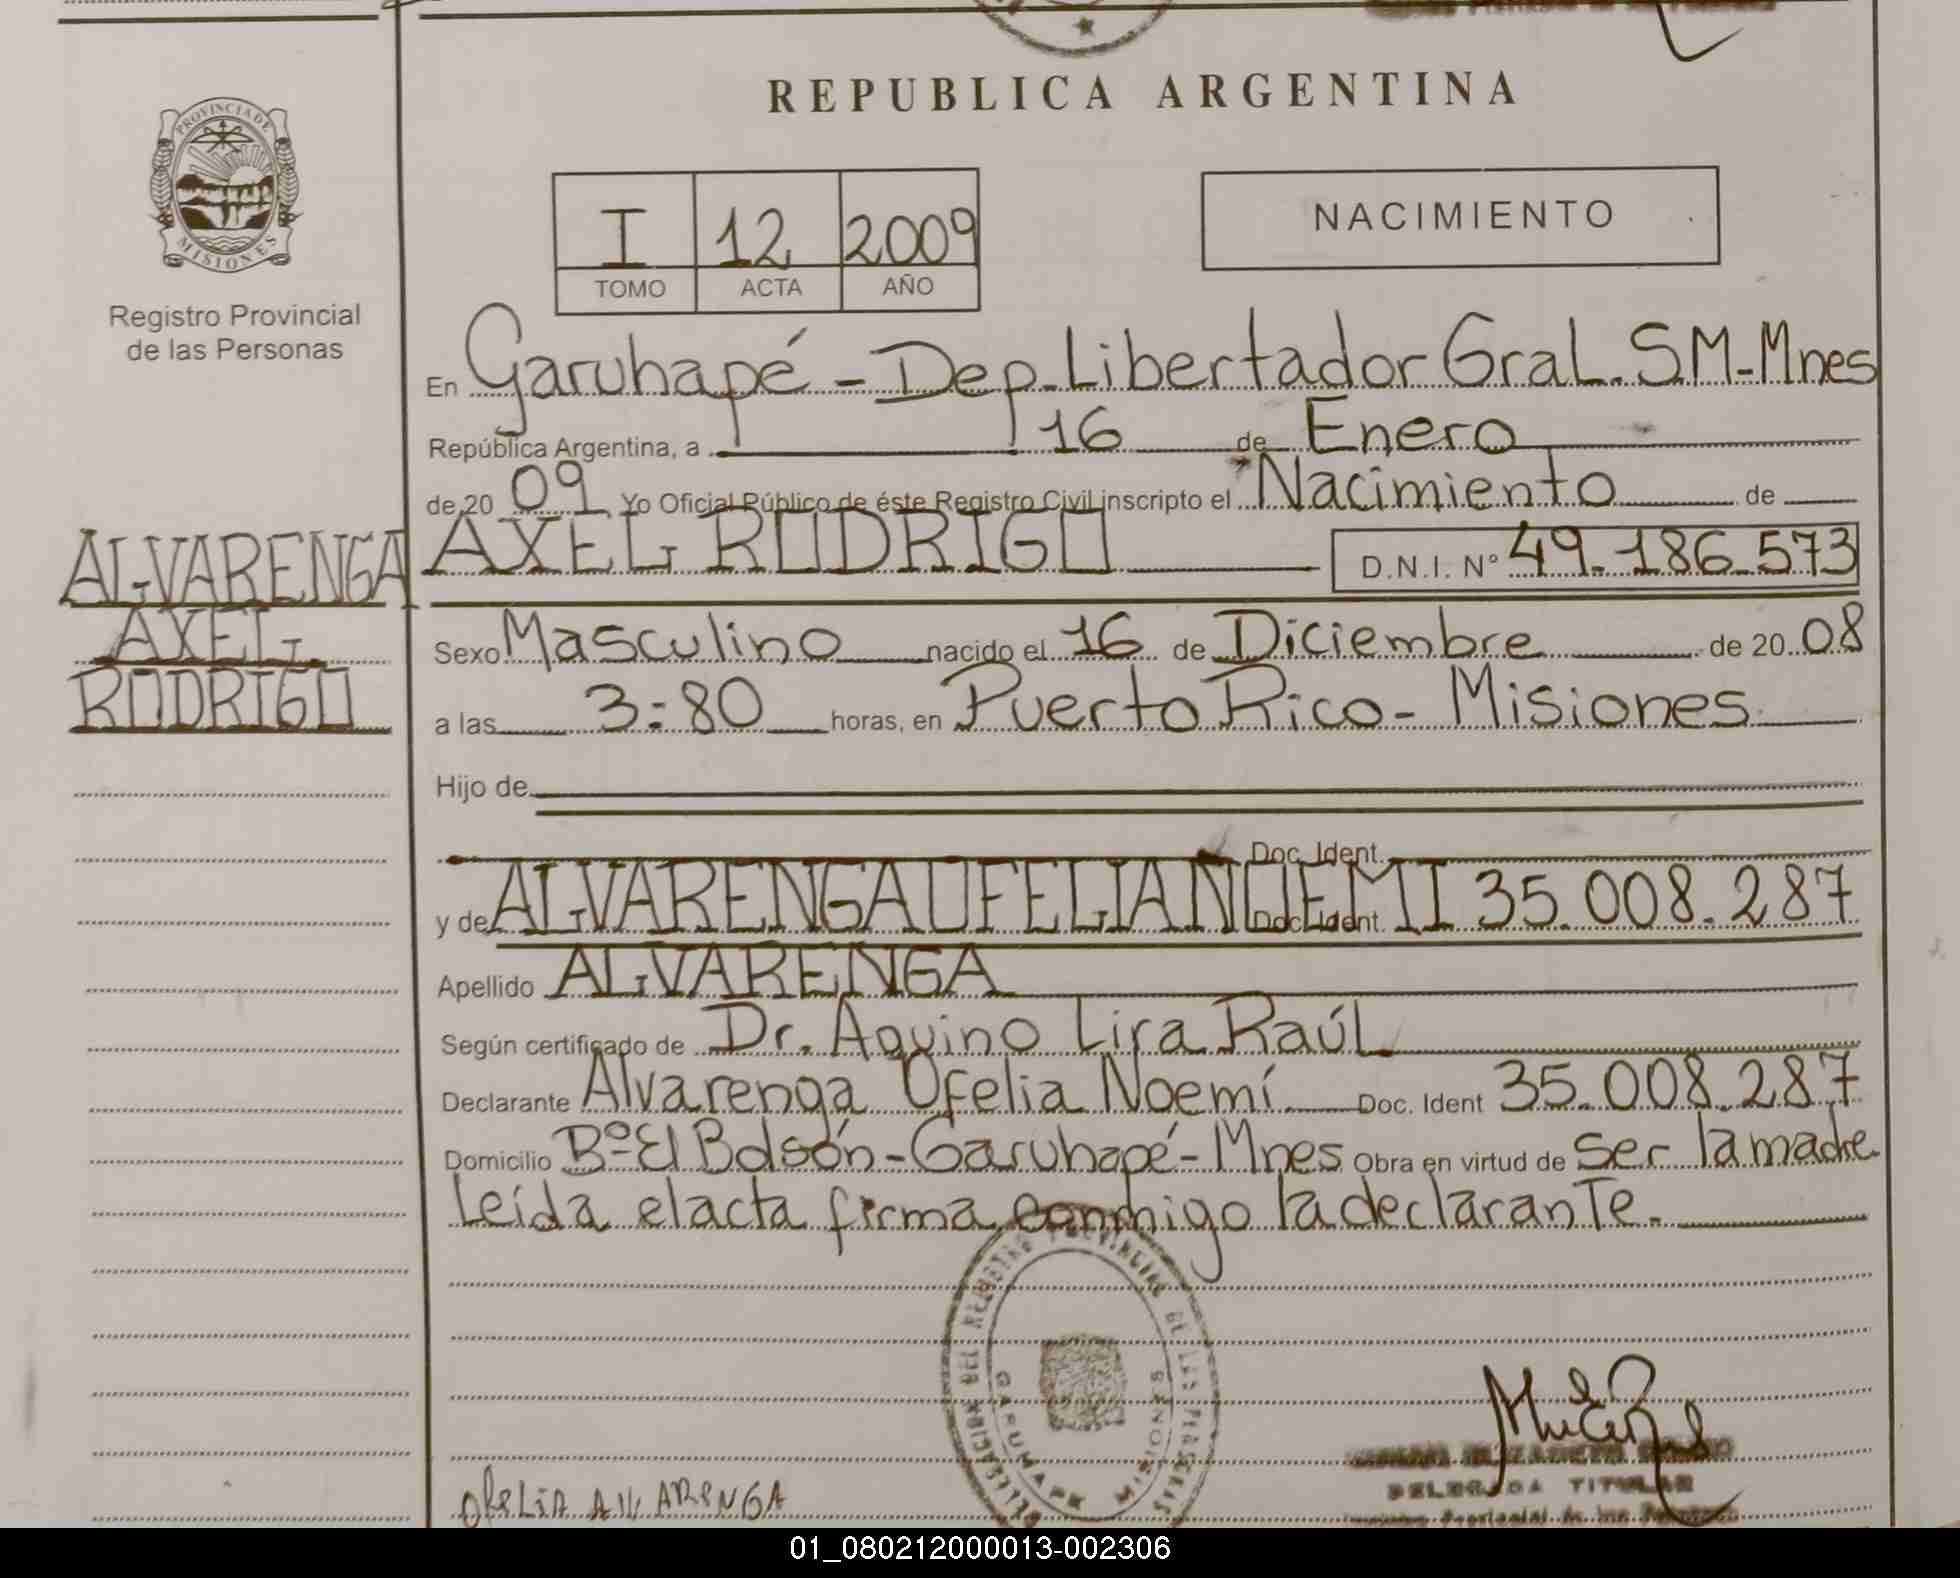 REPUBLICA ARGENTINA
PROVINCIA DE
MISIONES
Registro Provincial
de las Personas
I 12 2009
TOMO ACTA AÑO
NACIMIENTO
En Garuhapé - Dep. Libertador Gral. SM - Mnes
República Argentina, a 16 de Enero
de 20 09 Yo Oficial Público de éste Registro Civil inscripto el Nacimiento de
ALVARENGA
AXEL
RODRIGO
AXEL RODRIGO D.N.I. Nº 49.186.573
Sexo Masculino nacido el 16 de Diciembre de 20 08
a las 3:80 horas, en Puerto Rico - Misiones
Hijo de
Doc. Ident.
y de ALVARENGA OFELIA NOEMI Doc. Ident. 35.008.287
Apellido ALVARENGA
Según certificado de Dr. Aquino Lira Raúl
Declarante Alvarenga Ofelia Noemí Doc. Ident 35.008.287
Domicilio Bº El Bolsón - Garuhapé - Mnes Obra en virtud de ser la madre
Leída el acta firma conmigo la declarante.
REGISTRO PROVINCIAL DE LAS PERSONAS
GARUHAPE MISIONES
OFELIA ALVARENGA
DELEGADA TITULAR
01_080212000013-002306